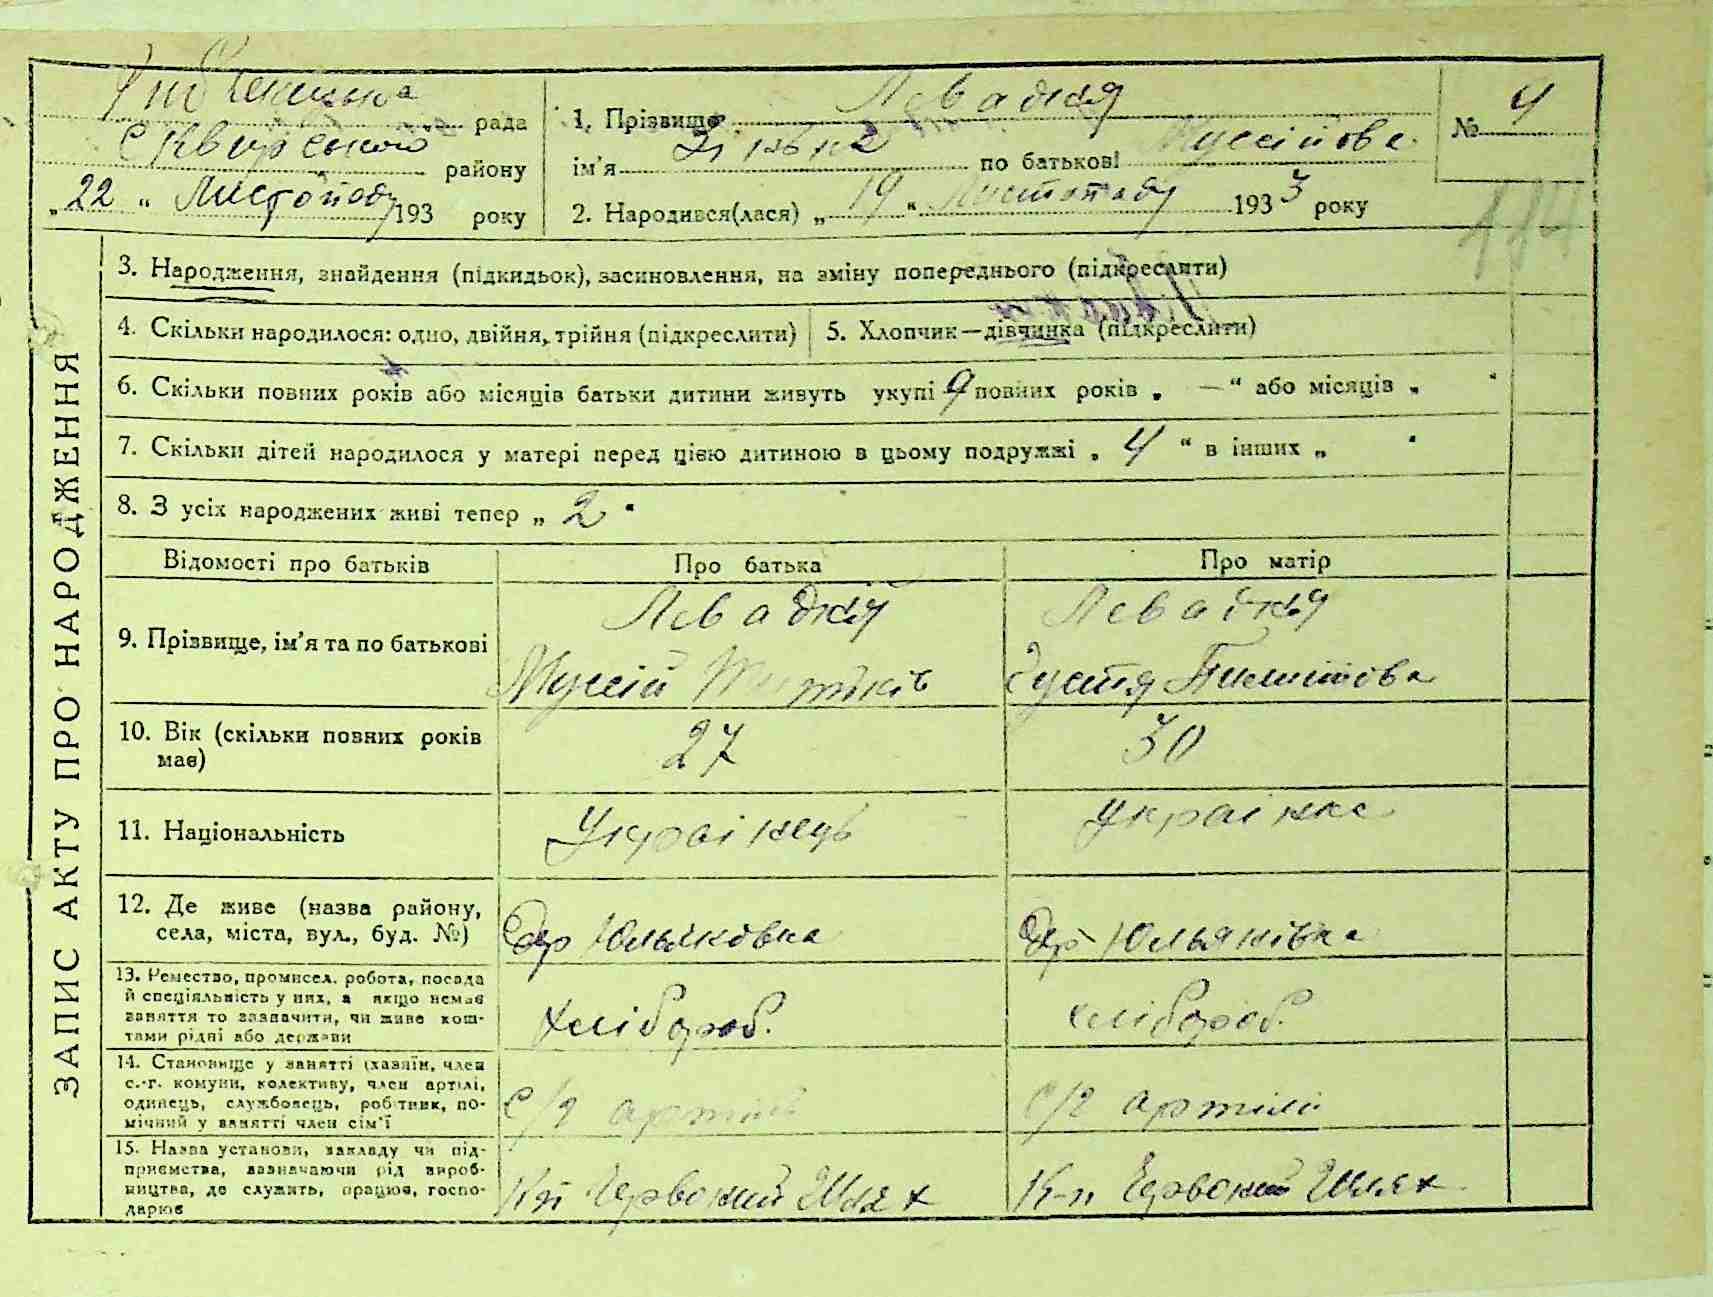 рада
Сквирського району
„22" Листопаду 193 року
1. Прізвище Левадняя
ім'я по батькові Мусіїова
№ 4
2. Народився(лася) „19" Листопаду 1933 року
114
ЗАПИС АКТУ ПРО НАРОДЖЕННЯ
3. Народження, знайдення (підкидьок), засиновлення, на зміну попереднього (підкреслити)
4. Скільки народилося: одно, двійня, трійня (підкреслити)
5. Хлопчик—дівчинка (підкреслити)
6. Скільки повних років або місяців батьки дитини живуть укупі 9 повних років „ —" або місяців „ "
7. Скільки дітей народилося у матері перед цією дитиною в цьому подружжі „ 4 " в інших „ "
8. З усіх народжених живі тепер „ 2 "
Відомості про батьків
Про батька
Про матір
9. Прізвище, ім'я та по батькові
Мусій
Пилипова
10. Вік (скільки повних років
має)
27
30
11. Національність
Українець
Українка
12. Де живе (назва району,
села, міста, вул., буд. №)
Юльяновка
Юльянівка
13. Ремество, промисел. робота, посада
й спеціяльність у них, а якщо немає
заняття то зазначити, чи живе кош-
тами рідні або держави
хлібороб.
хлібороб.
14. Становище у занятті (хазяїн, член
с.-г. комуни, колективу, член артілі,
одинець, службовець, робітник, по-
мічний у занятті член сім'ї
с/г артілі
с/г артілі
15. Назва установи, закладу чи під-
приємства, зазначаючи рід вироб-
ництва, де служить, працює, госпо-
дарює
К-п Червоний Шлях
К-п Червоний Шлях